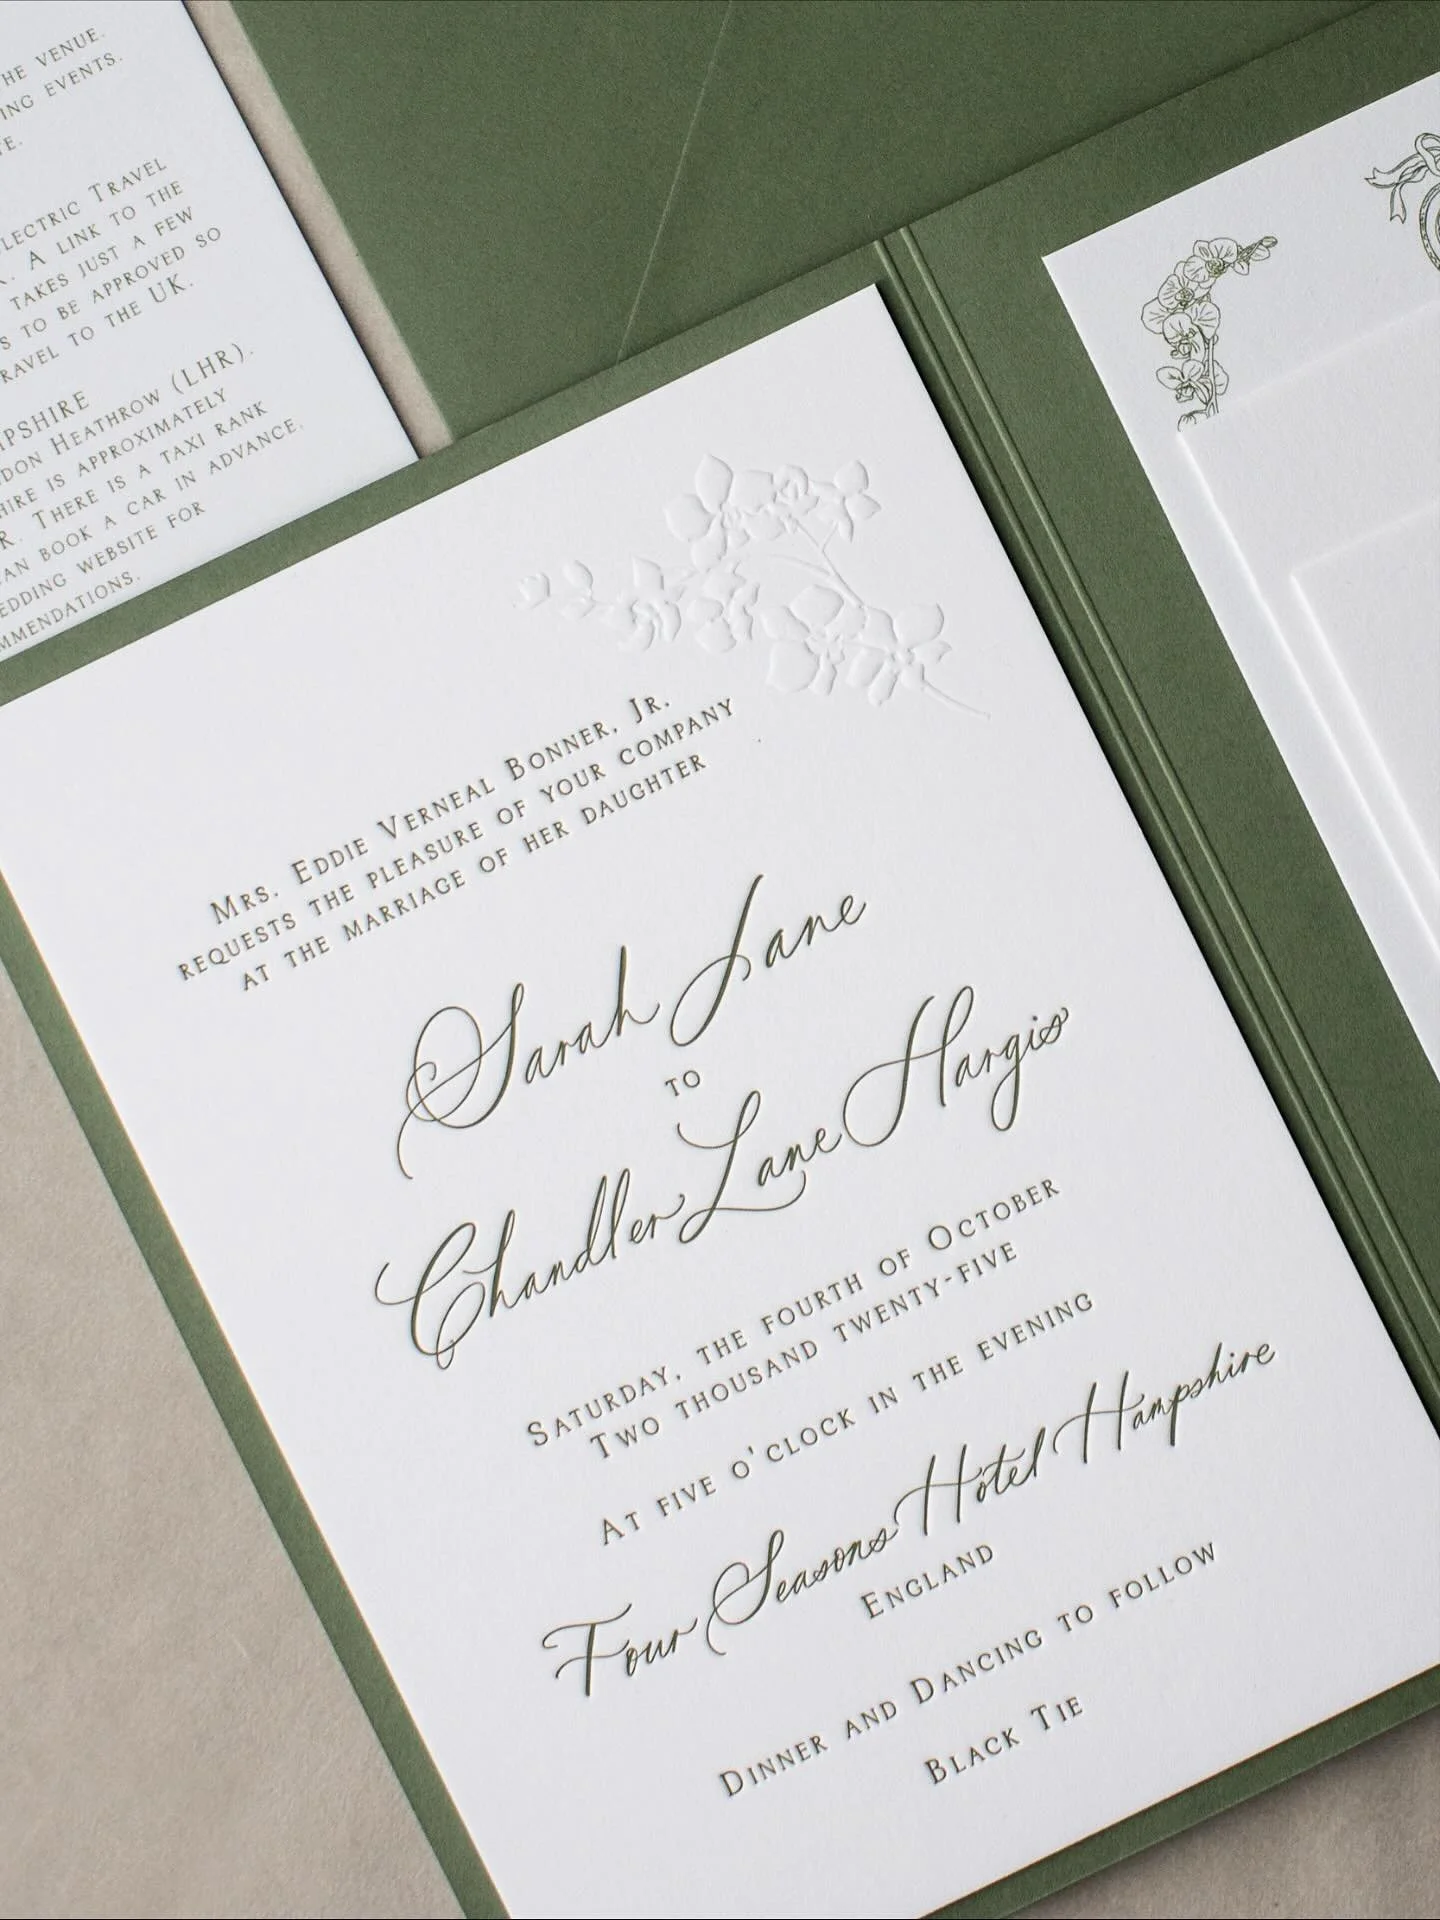 HE VENUE.
ING EVENTS.
TE.
LECTRIC TRAVEL
A LINK TO THE
TAKES JUST A FEW
S TO BE APPROVED SO
RAVEL TO THE UK.
PSHIRE
DON HEATHROW (LHR).
HIRE IS APPROXIMATELY
R. THERE IS A TAXI RANK
AN BOOK A CAR IN ADVANCE.
EDDING WEBSITE FOR
MMENDATIONS.
MRS. EDDIE VERNEAL BONNER, JR.
REQUESTS THE PLEASURE OF YOUR COMPANY
AT THE MARRIAGE OF HER DAUGHTER
Sarah Jane
TO
Chandler Lane Hargis
SATURDAY, THE FOURTH OF OCTOBER
TWO THOUSAND TWENTY-FIVE
AT FIVE O'CLOCK IN THE EVENING
Four Seasons Hotel Hampshire
ENGLAND
DINNER AND DANCING TO FOLLOW
BLACK TIE